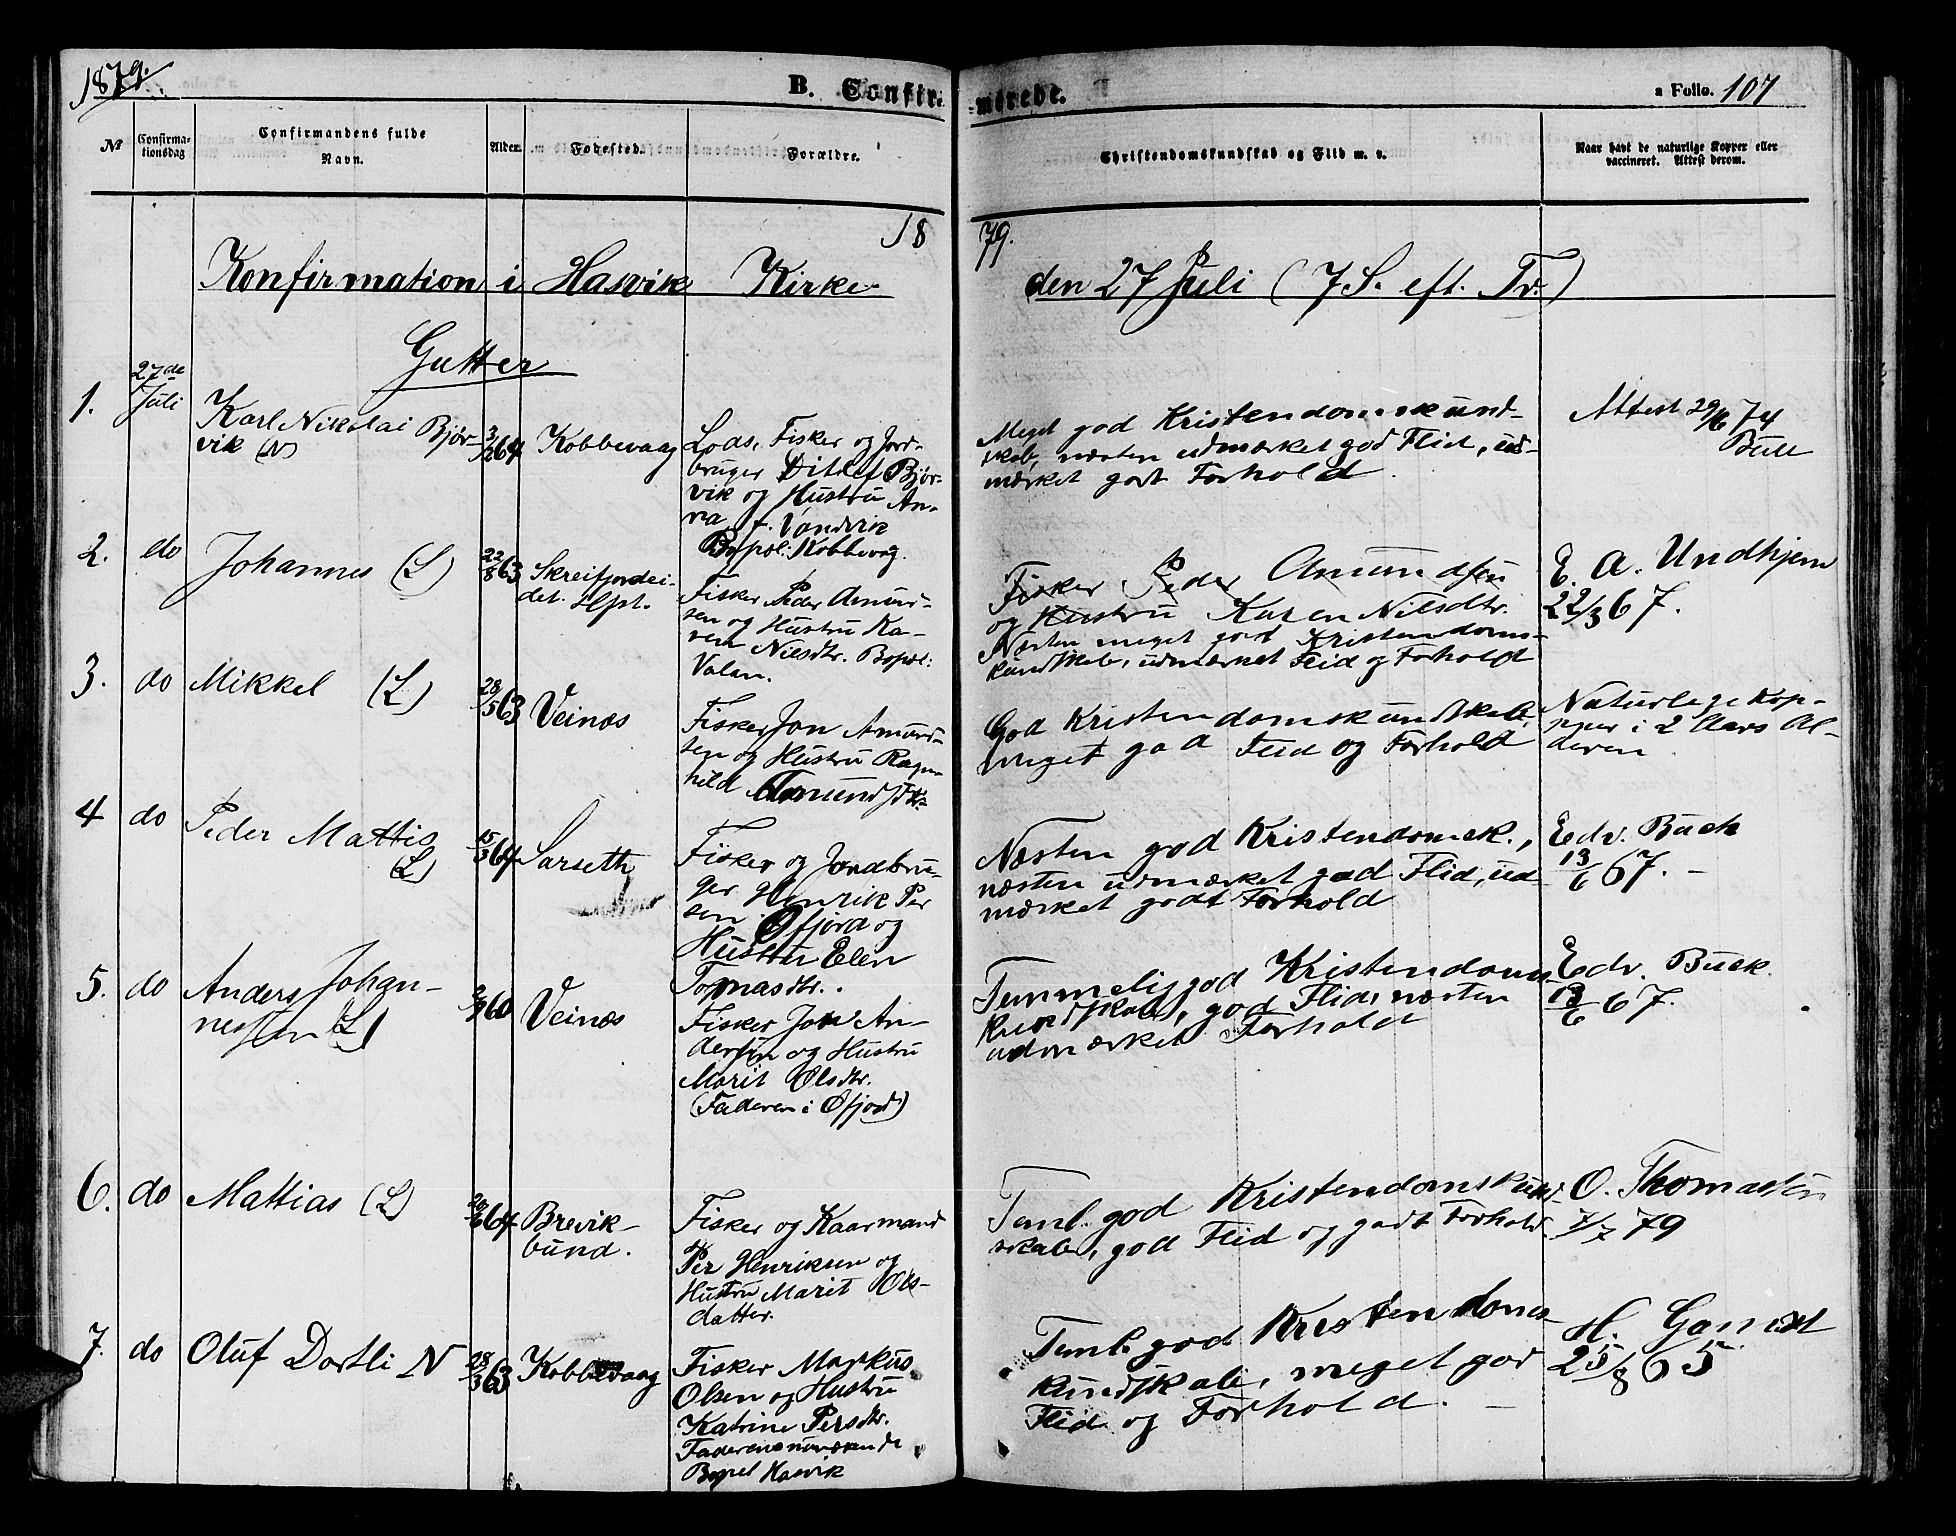 1879.
B. Confir-
merede.
a Folio. 107
No
Confirma-
tionsdag
Confirmandens fulde
Navn.
Alder.
Fødested.
Forældre.
Christendomskundskab og Flid m. v.
Naar havt de naturlige Kopper eller
vaccineret. Attest derom.
18
79.
Konfirmation i Hasvik Kirke
den 27 Juli (7 S. eft. Tr.)
Gutter
1.
27de
Juli
Karl Nikolai Bjør-
vik (N)
3/2 64
Kobbevaag
Lods, Fisker og Jord-
bruger Ditlef Bjør-
vik og Hustru An-
na f. Vandvik
Bopæl: Kobbevag.
Meget god Kristendomskund-
skab, næsten udmærket god Flid, ud-
mærket godt Forhold
Attest 29/6 74
Bull
2.
do
Johannes (L)
22/8 63
Skreifjordei-
det. Hft.
Fisker Peder Amund-
sen og Hustru Ka-
ren Nilsdtr. Bopæl:
Valan.
Fisker Peder Amundsen
og Hustru Karen Nilsdtr.
Næsten meget god Kristendoms-
kundskab, udmærket Flid og Forhold
E. A. Undhjem
22/3 67.
3.
do
Mikkel (L)
28/5 63
Veinæs
Fisker Jon Amund-
sen og Hustru Ragn-
hild Amundsdtr.
God Kristendomskundskab,
meget god Flid og Forhold
Naturlige Kop-
per i 2 Aars Al-
deren
4
do
Peder Mattis
(L)
15/3 64
Sarseth
Fisker og Jordbru-
ger Henrik Per
sen Øfjord og
Hustru Elen
Tomasdtr.
Næsten god Kristendomsk.,
næsten udmærket god Flid, ud
mærket godt Forhold
Edv. Buck
13/6 67. -
5.
do
Anders Johan-
nessen (L)
60
Veinæs
Fisker Jon An-
dersen og Hustru
Marit Olsdtr.
(Faderen i Øfjord)
Temmelig god Kristendoms
kundskab, god Flid, næsten
udmærket Forhold
Edv. Buck.
13/6 67.
6.
do
Mattias (L)
64
Brevik-
bund.
Fisker og Kaarmand
Per Henriksen og
Hustru Marit Ols-
datter.
Teml. god Kristendomskund
skab, god Flid og godt Forhold.
O. Thomassen
7/7 79
7.
do
Oluf Dortli N
28/3 63
Kobbevaag
Fisker Markus
Olsen og Hustru
Katrine Persdtr.
Faderens nuværende
Bopel Hasvik
Teml. god Kristendoms-
kundskab, meget god
Flid og Forhold. -
H. Gamst
25/8 65